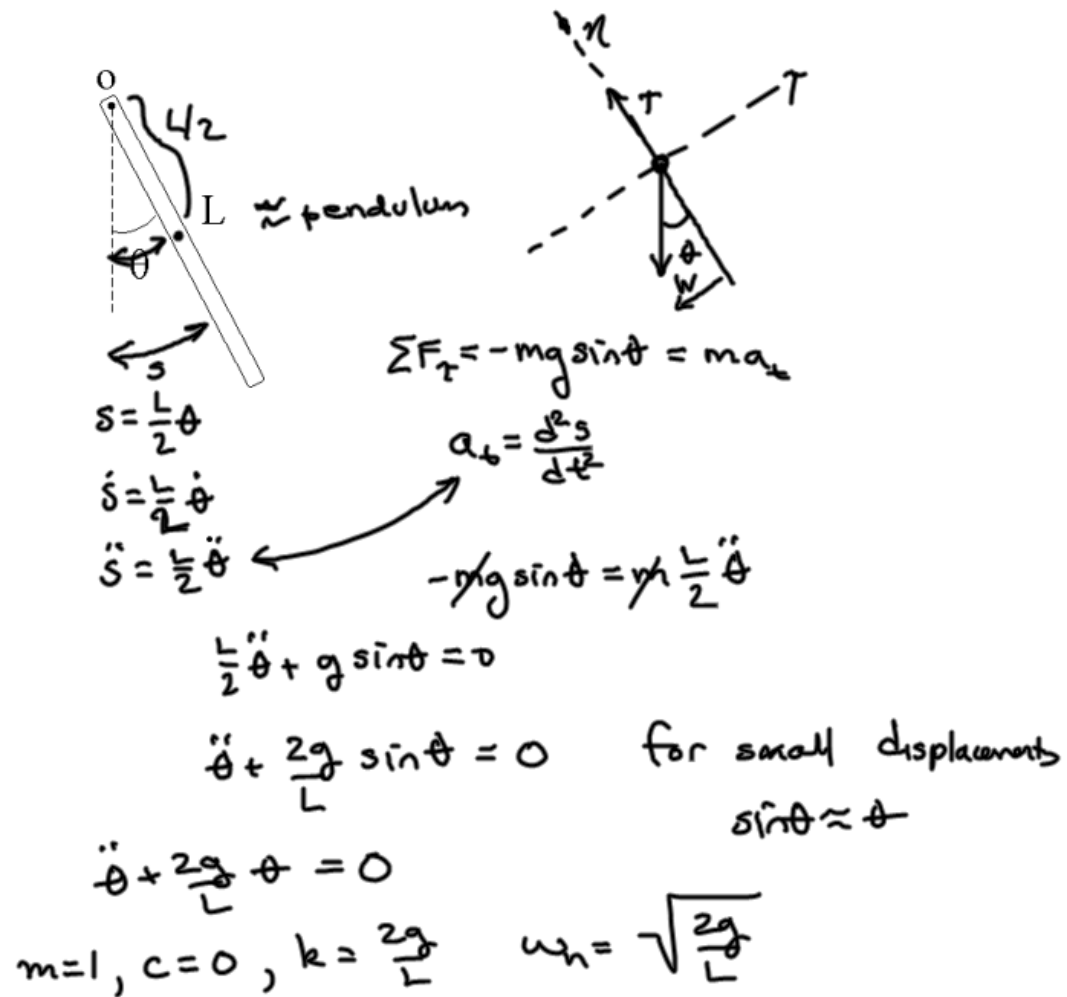 O
L/2
L ≈ pendulum
θ
s
n
T
T
θ
W
ΣF_τ = -mg sinθ = ma_t
s = L/2 θ
a_t = d²s/dt²
ṡ = L/2 θ̇
s̈ = L/2 θ̈
-mg sinθ = m L/2 θ̈
L/2 θ̈ + g sinθ = 0
θ̈ + 2g/L sinθ = 0 for small displacements
sinθ ≈ θ
θ̈ + 2g/L θ = 0
m=1, c=0, k= 2g/L ωn= √(2g/L)